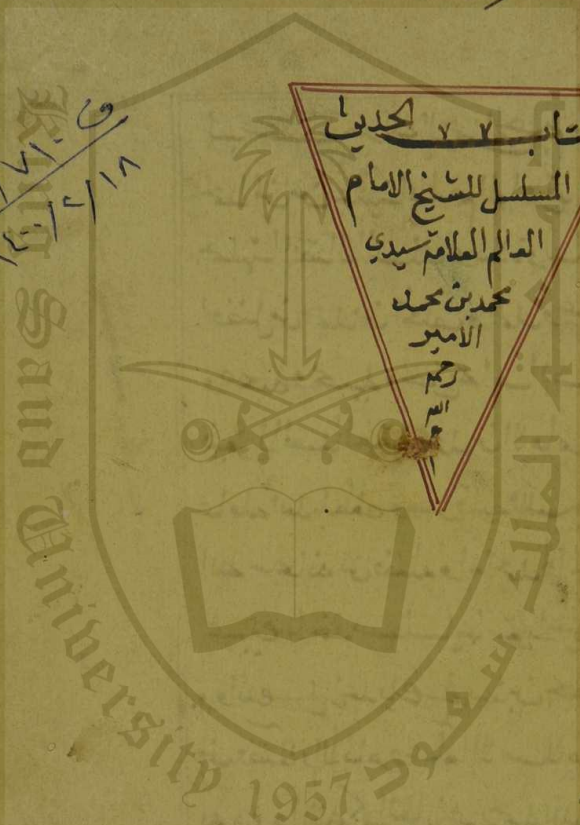 تاب الحديث
المسلسل للشيخ الامام
العالم العلامة سيدي
محمد بن محمد
الامير
رحمه
الله
١٤٠٠/٢/١٨
King Saud University 1957
الملك سعود